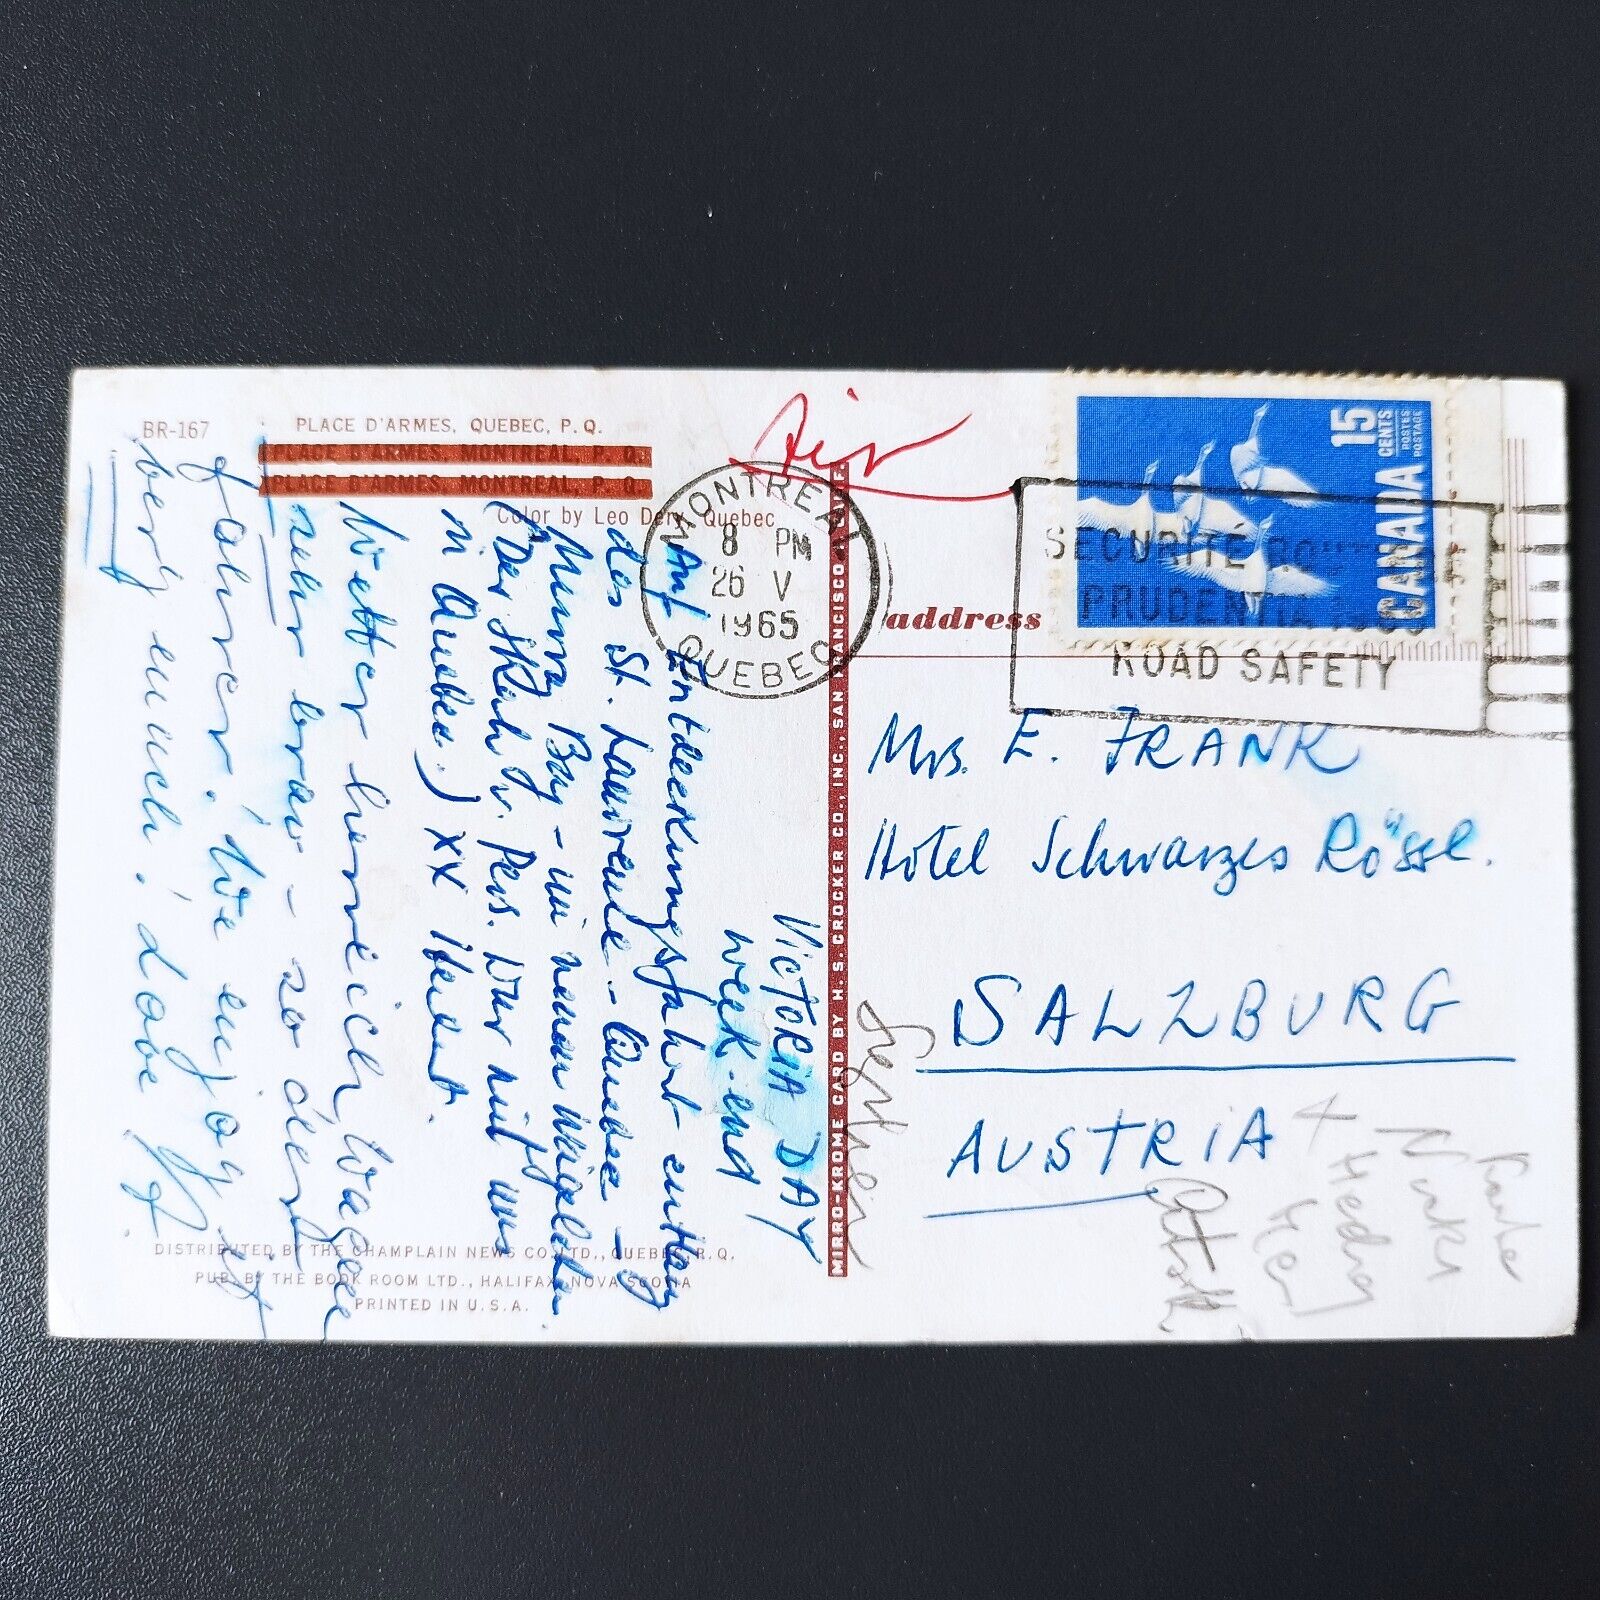 BR-167
PLACE D'ARMES, QUEBEC, P. Q.
PLACE D'ARMES, MONTREAL, P. Q.
PLACE D'ARMES, MONTREAL, P. Q.
Color by Leo Dery, Quebec
VICTORIA DAY
week-end
Auf Entdeckungsfahrt entlang
des St. Lawrence - Quebec -
Murray Bay - im neuen
(Der v. Pers. war mit uns
in Quebec.) XX
Wetter herrlich, Wagen
sehr brav - so der
Fahrer! We enjoy it
very much! Love
DISTRIBUTED BY THE CHAMPLAIN NEWS CO. LTD., QUEBEC, P. Q.
PUB. BY THE BOOK ROOM LTD., HALIFAX, NOVA SCOTIA
PRINTED IN U. S. A.
MIRRO-KROME CARD BY H. S. CROCKER CO., INC., SAN FRANCISCO
Air
MONTREAL
8 PM
26 V
1965
QUEBEC
15
CENTS
POSTES
POSTAGE
CANADA
SÉCURITÉ
PRUDENTIA
ROAD SAFETY
address
Mrs. E. FRANK
Hotel Schwarzes Rössl.
SALZBURG
AUSTRIA